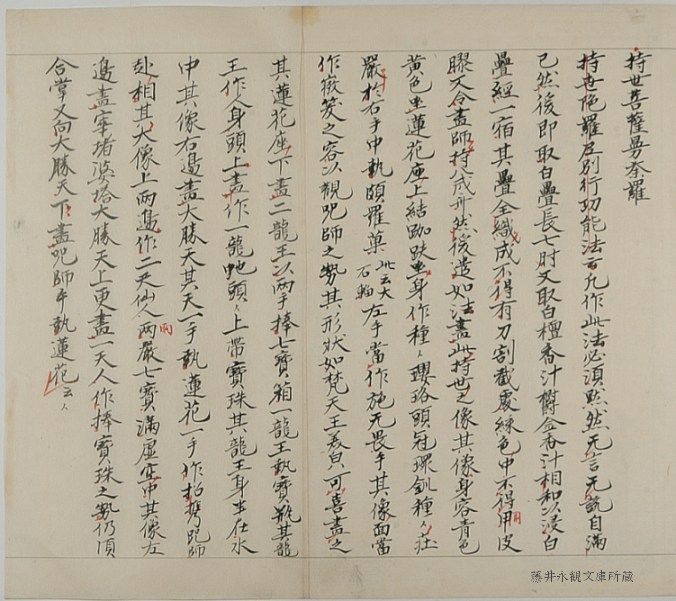 持世菩薩曼荼羅
持世陀羅尼別行功能法云凡作此法必須默然无言无説自滿
已然後即取白疊長七肘又取白檀香汁欝金香汁相和以浸白
疊經一宿其疊全織成不得有刀割截處綵色中不得用皮
膠又令畫師持八戒齋然後遣如法畫此持世之像其像身容青色
黄色坐蓮花座上結跏趺坐身作種〻瓔珞頭冠環釧種〻莊
嚴於右手中執頗羅菓此云大石榴左手當作施无畏手其像面當
作微笑之容以觀呪師之勢其形狀如梵天王美皃可喜畫之
其蓮花座下畫二龍王以兩手捧七寶箱一龍王執寶瓶其龍
王作人身頭上畫作一龍虵頭〻上帶寶珠其龍王身半在水
中其像右邊畫大勝天其天一手執蓮花一手作招携呪師
赴相其大像上兩邊作二天仙人兩嚴七寶滿虛空中其像左
邊畫窣堵波塔大勝天上更畫一天人作捧寶珠之勢仍須
合掌又向大勝天下畫呪師手執蓮花云〻
雨
用
藤井永観文庫所蔵